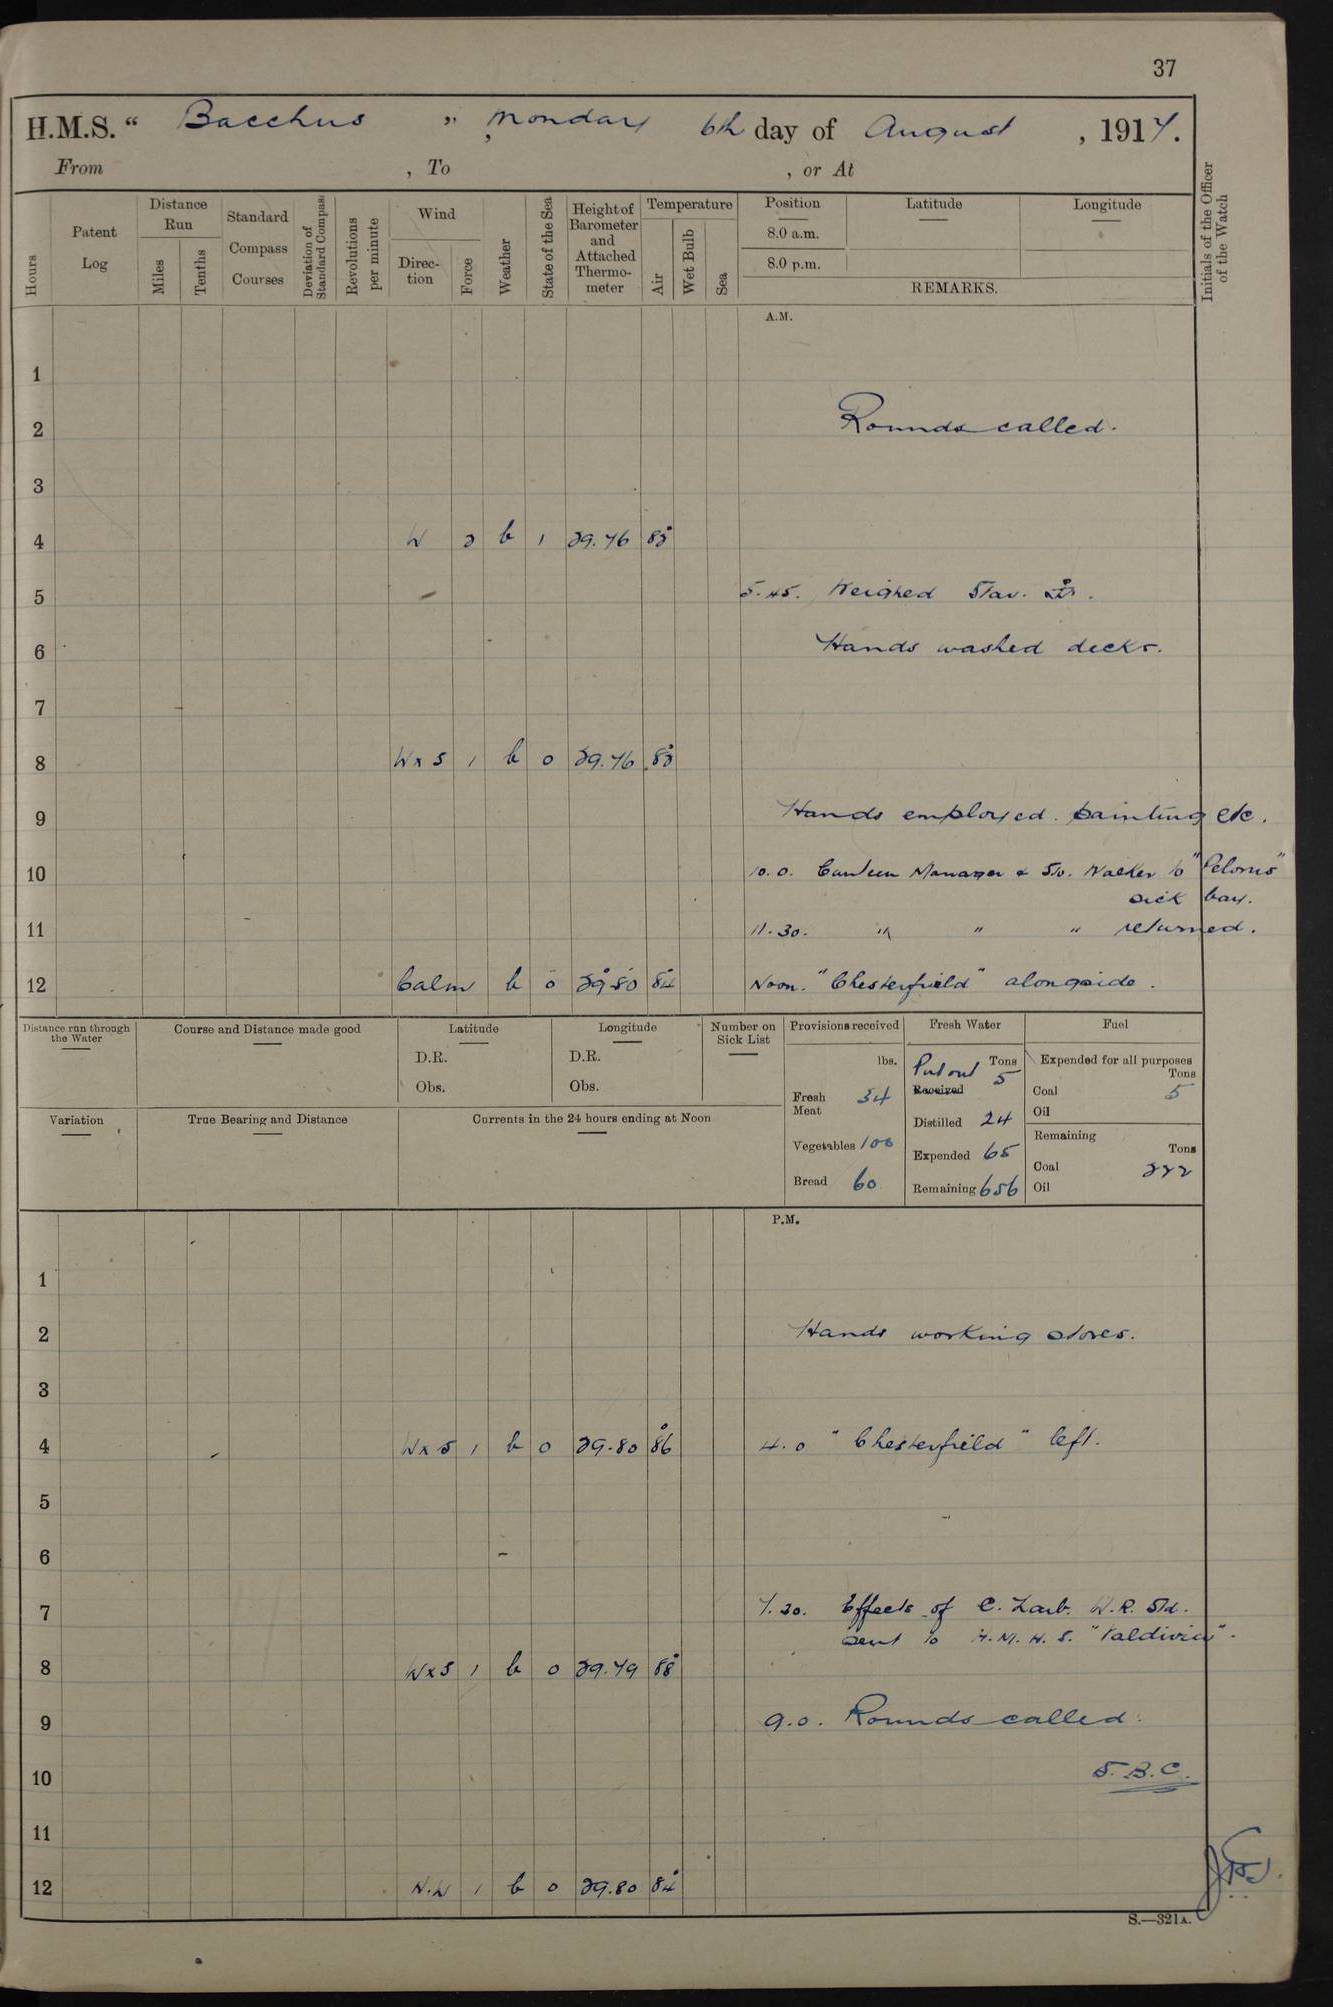 37
H.M.S. “ Bacchus ” , Monday 6th day of August , 1917.
From , To , or At
Hours
Patent Log
Distance Run
Miles
Tenths
Standard Compass Courses
Deviation of Standard Compass
Revolutions per minute
Wind
Direction
Force
Weather
State of the Sea
Height of Barometer and Attached Thermometer
Temperature
Air
Wet Bulb
Sea
Position Latitude Longitude
8.0 a.m.
8.0 p.m.
REMARKS.
Initials of the Officer of the Watch
A.M.
1
2 Rounds called.
3
4 W 2 b 1 29.76
5 5.45. Weighed Star. Ar.
6 Hands washed decks.
7
8 W x S 1 b 0 29.76
9 Hands employed painting etc.
10 10.0. Canteen Manager & Sto. Walker to "Pelorus"
sick bay.
11 11.30. " " " returned.
12 Calm b 0 29.80 84 Noon. "Chesterfield" alongside.
Distance run through the Water
Course and Distance made good
Latitude
D.R.
Obs.
Longitude
D.R.
Obs.
Number on Sick List
Provisions received
lbs.
Fresh Meat 54
Vegetables 100
Bread 60
Fresh Water
Tons
Put out 5
Received
Distilled 24
Expended 65
Remaining 656
Fuel
Expended for all purposes
Tons
Coal 5
Oil
Remaining
Tons
Coal 222
Oil
Variation
True Bearing and Distance
Currents in the 24 hours ending at Noon
P.M.
1
2 Hands working stores.
3
4 W x S 1 b 0 29.80 86 4.0 "Chesterfield" left.
5
6
7 7.30. Effects of C. Zarb. W.R. Std.
sent to H.M.H.S. "Valdivia".
8 W x S 1 b 0 29.79 88
9 9.0. Rounds called.
10 S.B.C.
11
12 N.W 1 b 0 29.80 84
S.—321A.